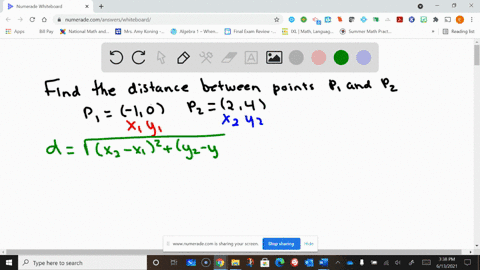 Numerade Whiteboard
numerade.com/answers/whiteboard/
Apps
Bill Pay
National Math and...
Mrs. Amy Koning -...
Algebra 1 - When...
Final Exam Review -...
Math, Languag...
Summer Math Prac...
Reading list
Find the distance between points P₁ and P₂
P₁ = (-1, 0) P₂ = (2, 4)
x₁ y₁ x₂ y₂
d = √(x₂ - x₁)² + (y₂ - y
www.numerade.com is sharing your screen.
Stop sharing
Hide
Type here to search
3:38 PM
6/13/2021